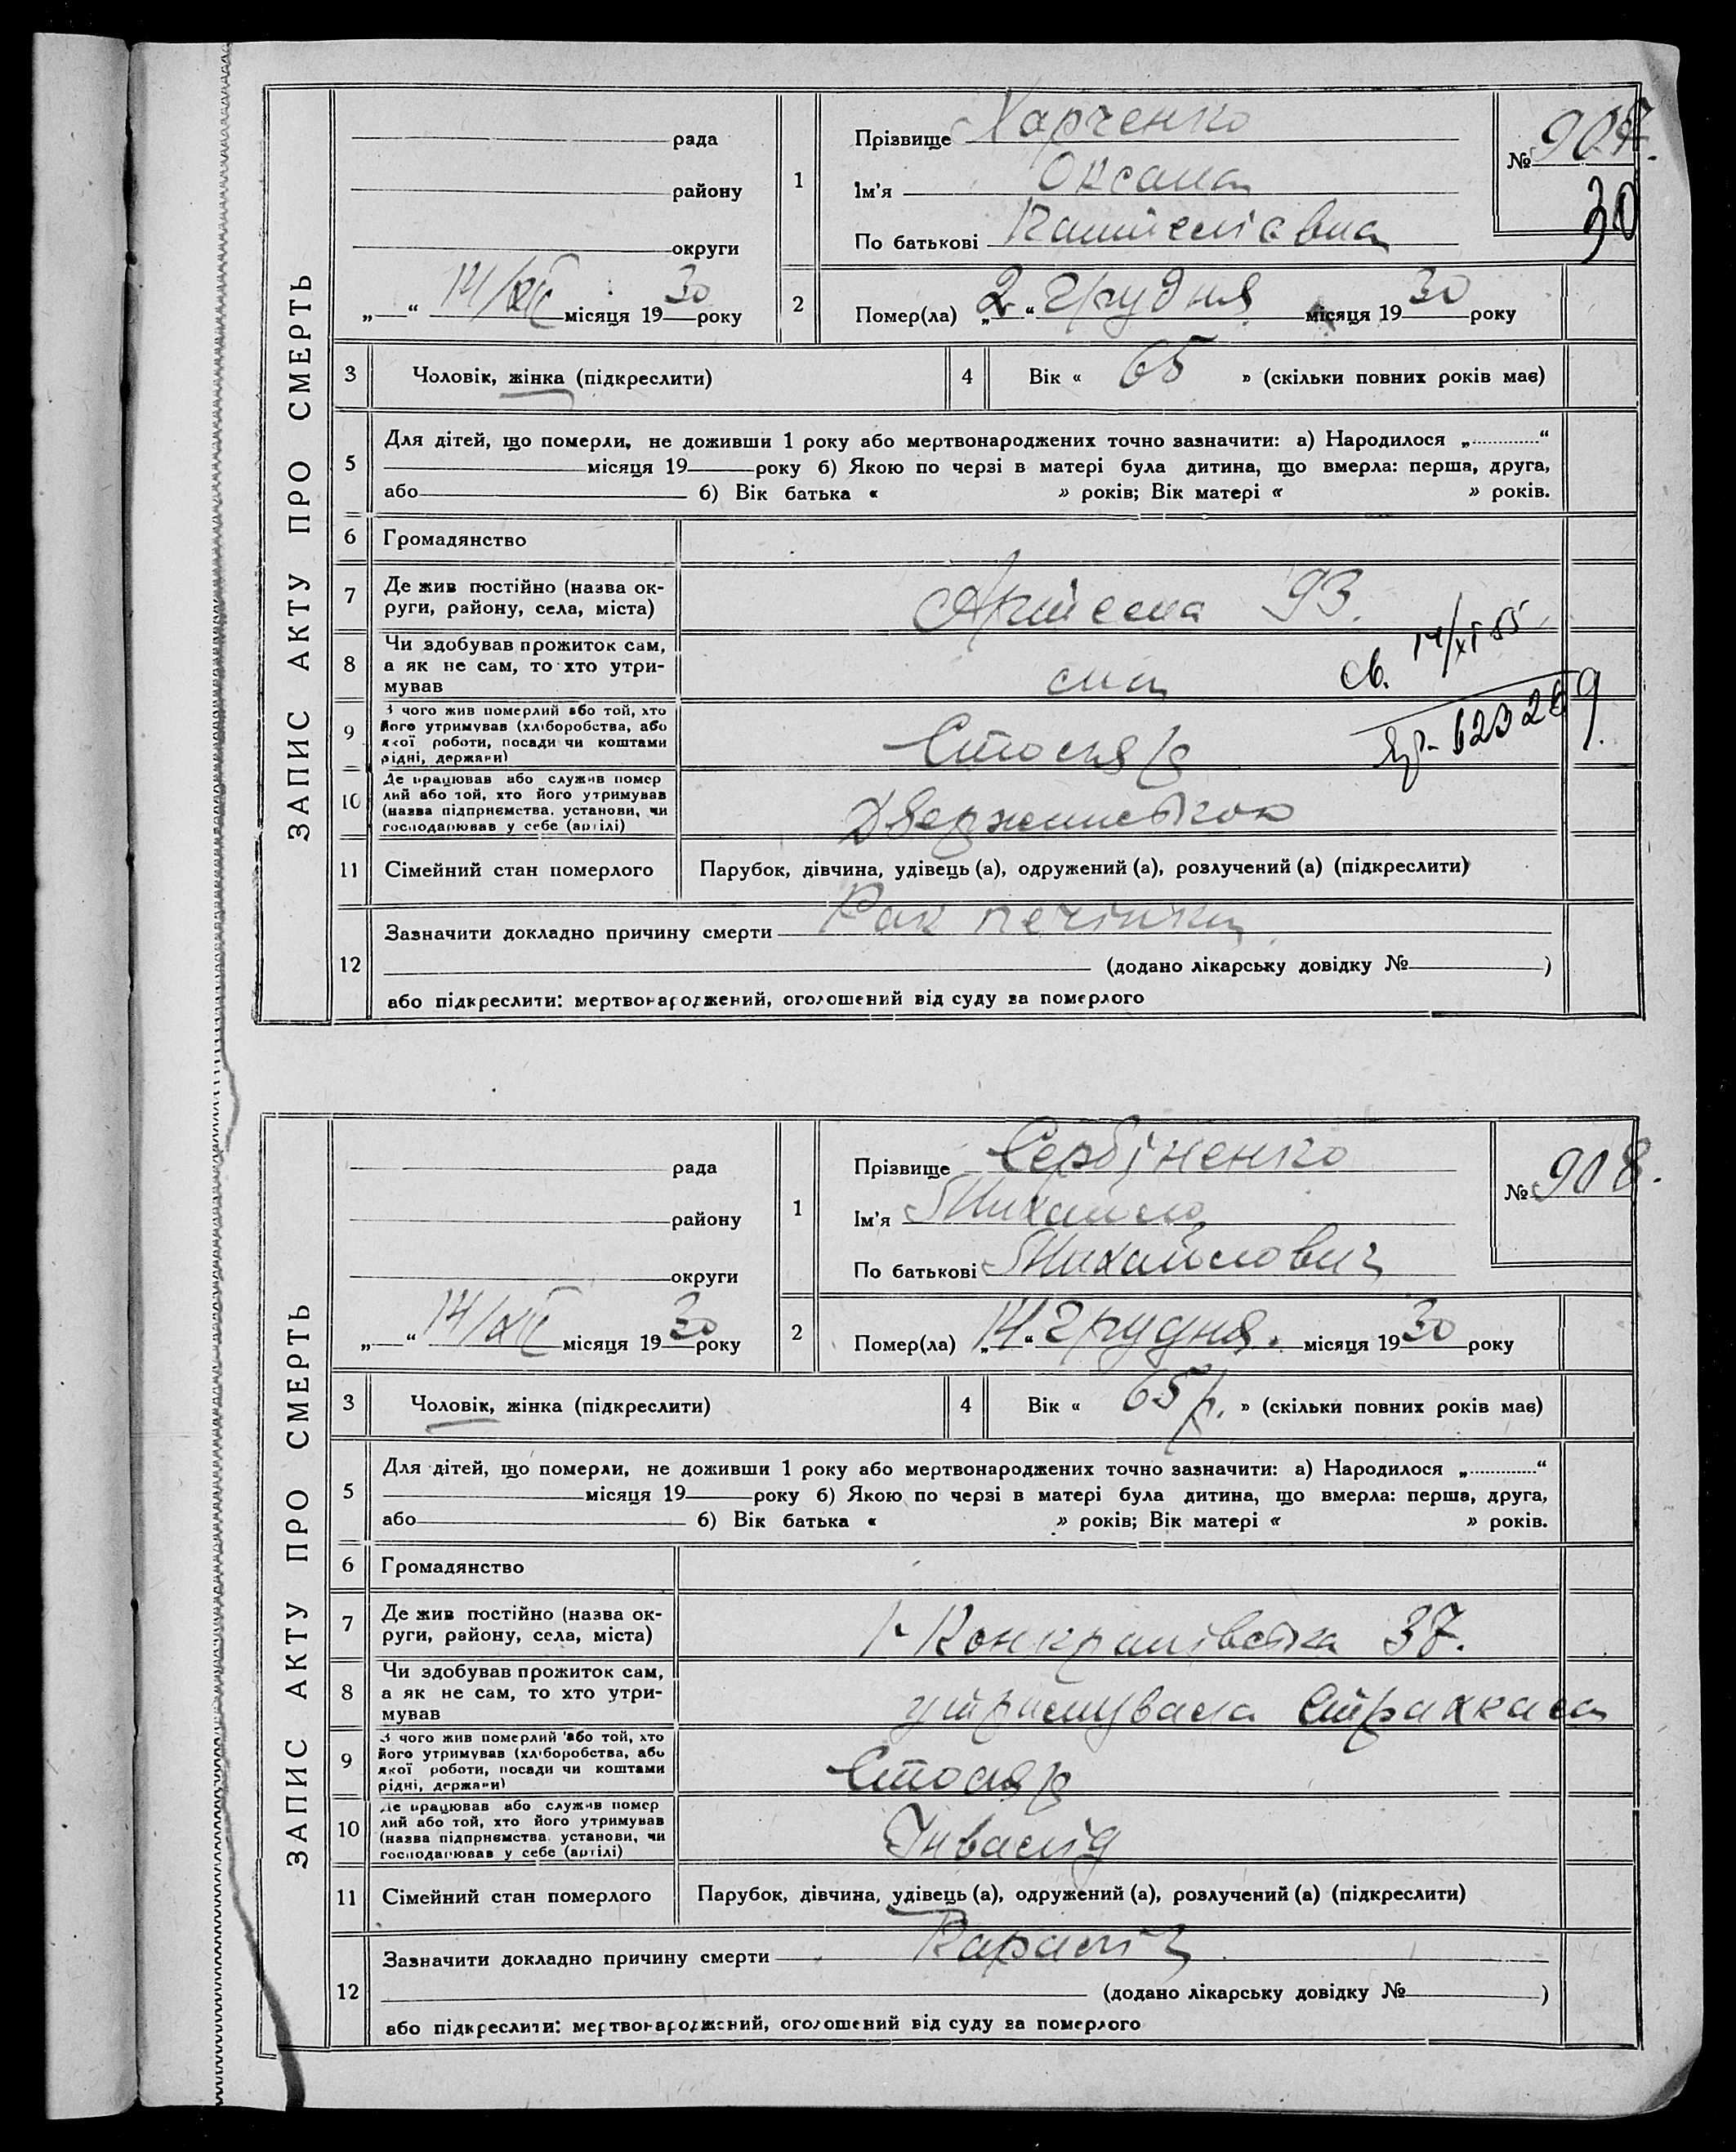 ЗАПИС АКТУ ПРО СМЕРТЬ
рада
району
округи
„ “ 14/XII місяця 1930 року
1
Прізвище Харченко
Ім'я Оксана
По батькові
№ 907.
30
2
Помер(ла) „2“ грудня місяця 1930 року
3
Чоловік, жінка (підкреслити)
4
Вік « 65 » (скільки повних років має)
5
Для дітей, що померли, не доживши 1 року або мертвонароджених точно зазначити: а) Народилося „ “
місяця 19 року б) Якою по черзі в матері була дитина, що вмерла: перша, друга,
або б) Вік батька « » років; Вік матері « » років.
6
Громадянство
7
Де жив постійно (назва ок-
руги, району, села, міста)
Артема 93.
8
Чи здобував прожиток сам,
а як не сам, то хто утри-
мував
син
св. 14/XI 55
9
З чого жив померлий або той, хто
його утримував (хліборобства, або
якої роботи, посади чи коштами
рідні, держави)
Столяр
623269.
10
Де працював або служив помер
лий або той, хто його утримував
(назва підприємства, установи, чи
господарював у себе (артілі)
11
Сімейний стан померлого
Парубок, дівчина, удівець (а), одружений (а), розлучений (а) (підкреслити)
12
Зазначити докладно причину смерти Рак печінки
(додано лікарську довідку № )
або підкреслити: мертвонароджений, оголошений від суду за померлого
ЗАПИС АКТУ ПРО СМЕРТЬ
рада
району
округи
„ “ 14/XII місяця 1930 року
1
Прізвище Сербіненко
Ім'я Михайло
По батькові Михайлович
№ 908.
2
Помер(ла) „14“ грудня. місяця 1930 року
3
Чоловік, жінка (підкреслити)
4
Вік « 65 р. » (скільки повних років має)
5
Для дітей, що померли, не доживши 1 року або мертвонароджених точно зазначити: а) Народилося „ “
місяця 19 року б) Якою по черзі в матері була дитина, що вмерла: перша, друга,
або б) Вік батька « » років; Вік матері « » років.
6
Громадянство
7
Де жив постійно (назва ок-
руги, району, села, міста)
37.
8
Чи здобував прожиток сам,
а як не сам, то хто утри-
мував
утримувала Страхкаса
9
З чого жив померлий або той, хто
його утримував (хліборобства, або
якої роботи, посади чи коштами
рідні, держави)
Столяр
10
Де працював або служив помер
лий або той, хто його утримував
(назва підприємства, установи, чи
господарював у себе (артілі)
Інвалід
11
Сімейний стан померлого
Парубок, дівчина, удівець (а), одружений (а), розлучений (а) (підкреслити)
12
Зазначити докладно причину смерти Нараліч
(додано лікарську довідку № )
або підкреслити: мертвонароджений, оголошений від суду за померлого